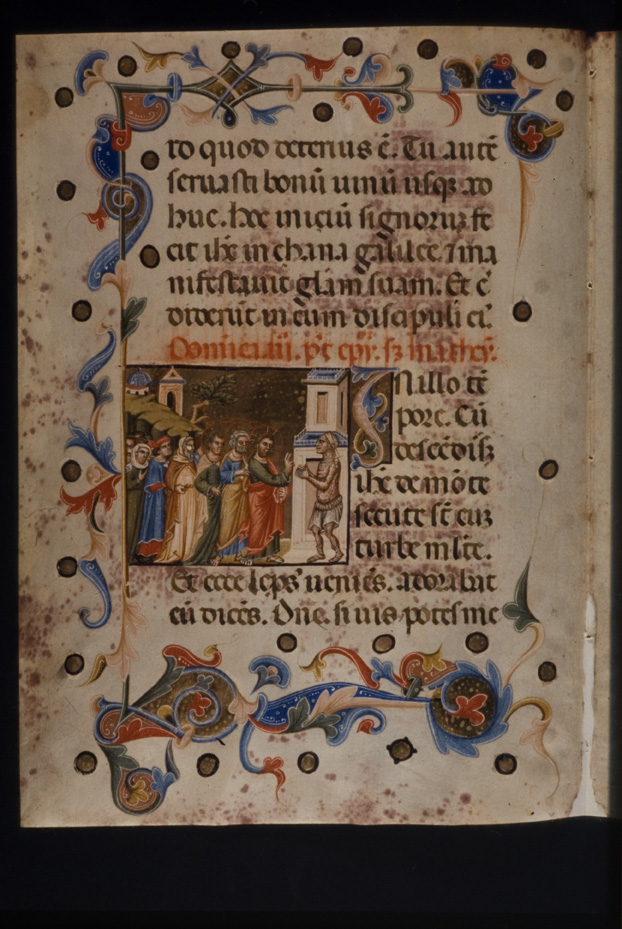 to quod deterius ē. Tu autē
seruasti bonū uinū usqꝫ ad
huc. hec iniciū signoruꝫ fe
cit ihc̄ in chana galilee. ⁊ ma
nifestauit glām suam. Et c̄
diderūt in eum discipuli ei᾽.
Domīca .iii. p᾽t epy᾽. sꝫ mathey᾽.
In illo tē
pore. Cū
descēdisꝫ
ihc̄ de mōte
secute st̄ euꝫ
turbe mlt̄e.
Et ecce lep̄s᾽ ueniēs. adorabat
eū dicēs. Dn̄e. si uis potes me